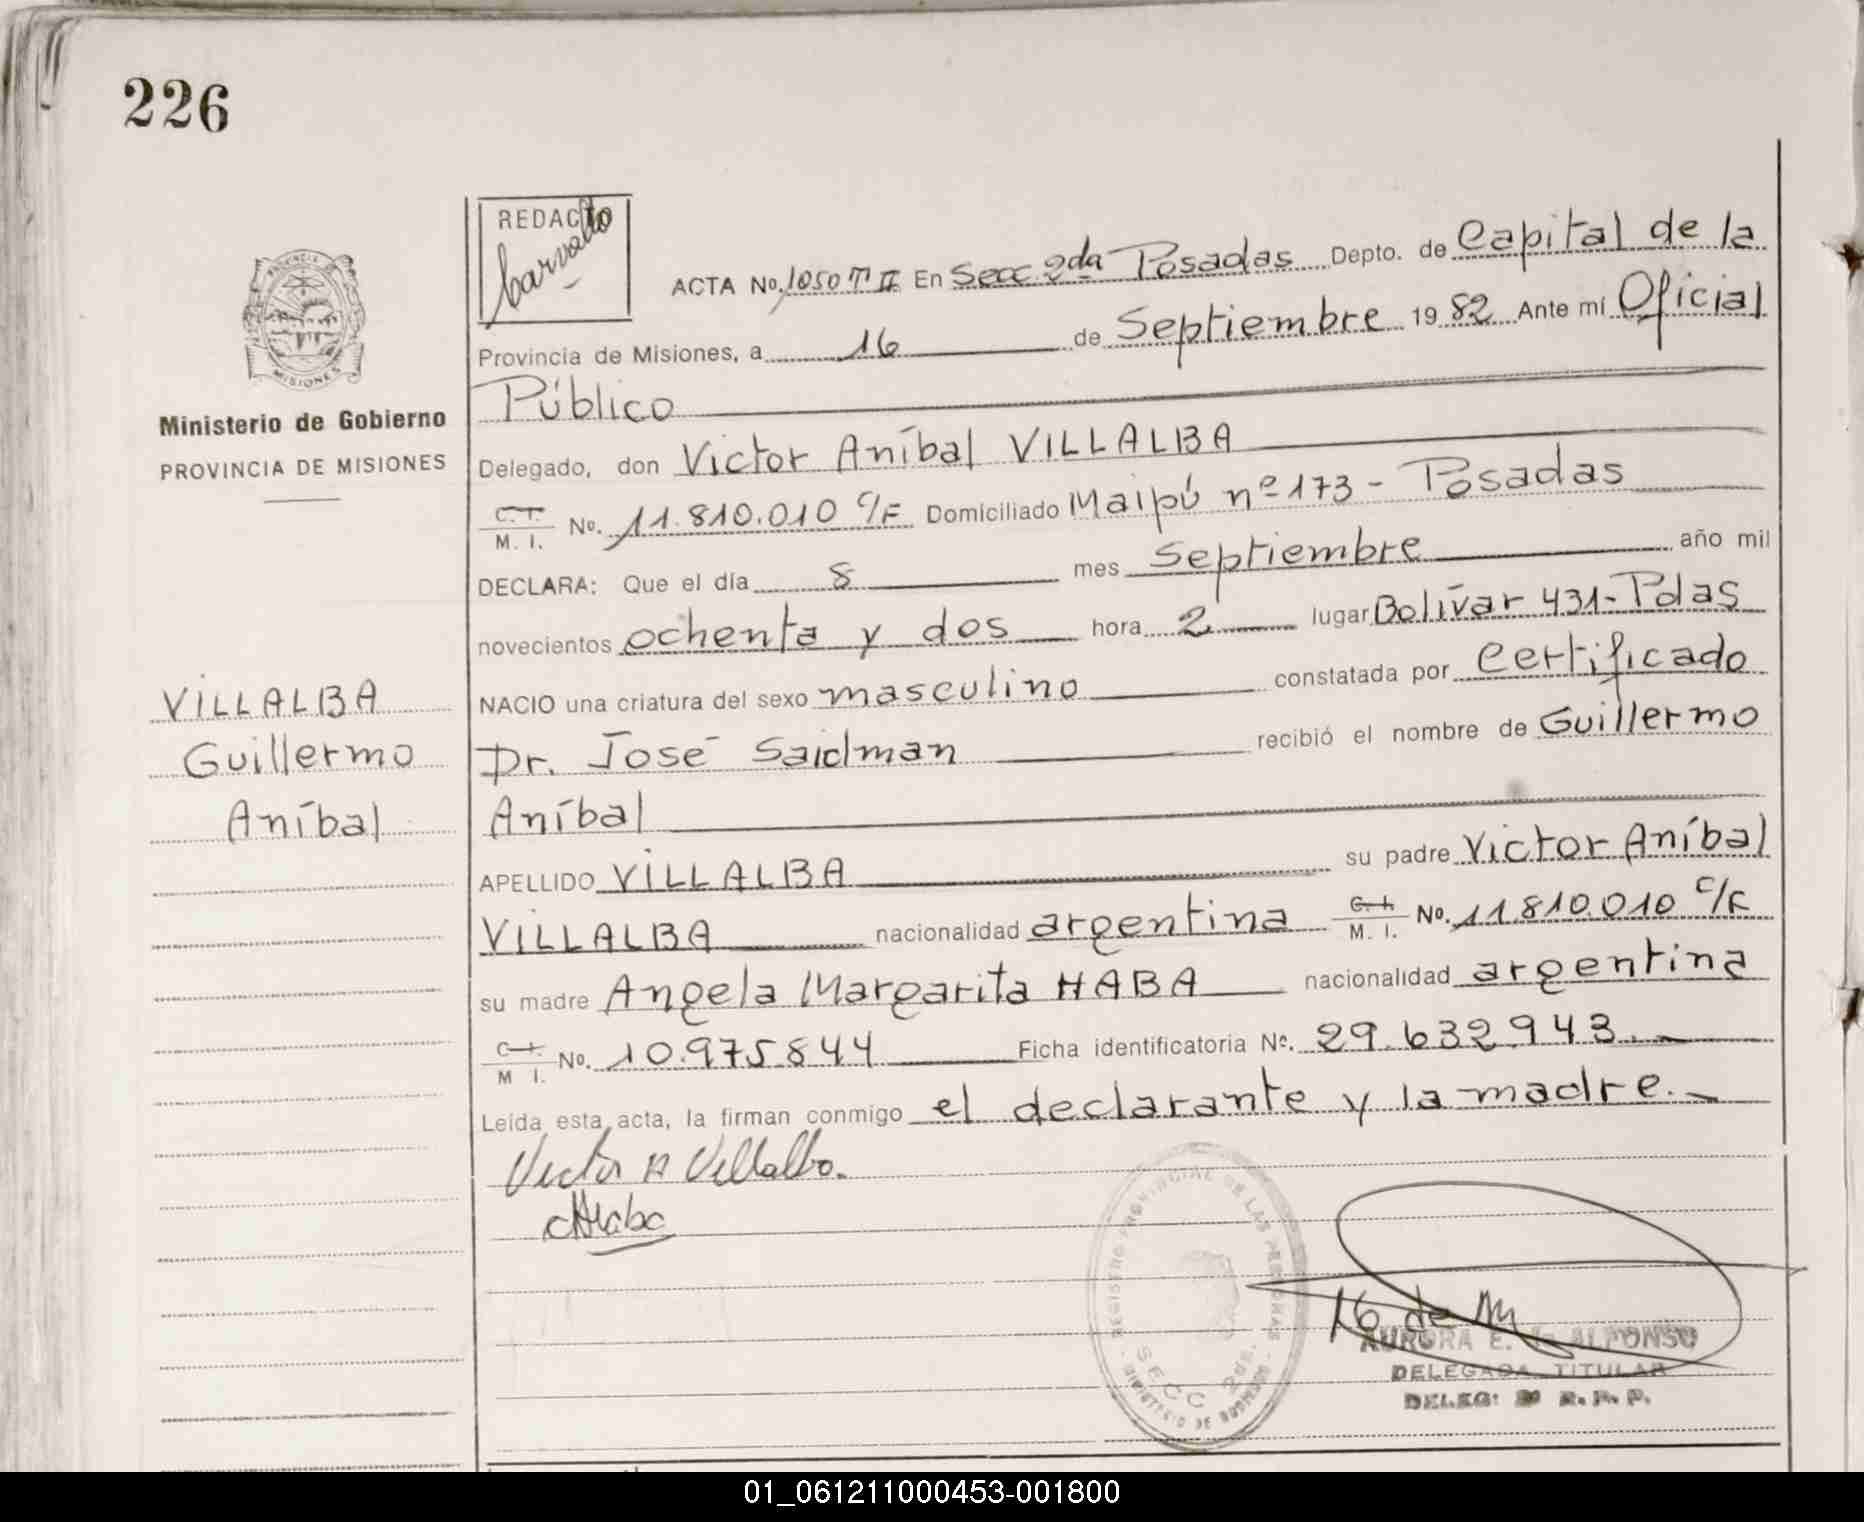 226
REDACTO
PROVINCIA
MISIONES
Ministerio de Gobierno
PROVINCIA DE MISIONES
ACTA No. 1050 T II En Secc 2da Posadas Depto. de Capital de la
Provincia de Misiones, a 16 de Septiembre 1982 Ante mí Oficial
Público
Delegado, don Victor Aníbal VILLALBA
C.I. M. I. No. 11.810.010 C/F Domiciliado Maipú nº 173 - Posadas
DECLARA: Que el día 8 mes Septiembre año mil
novecientos ochenta y dos hora 2 lugar Bolívar 431 - Pdas
NACIO una criatura del sexo masculino constatada por Certificado
Dr. José Saidman recibió el nombre de Guillermo
Aníbal
VILLALBA
Guillermo
Aníbal
APELLIDO VILLALBA su padre Victor Aníbal
VILLALBA nacionalidad argentina C.I. M. I. No. 11.810.010 C/F
su madre Angela Margarita HABA nacionalidad argentina
C.I. M I. No. 10.975.844 Ficha identificatoria No. 29.632.943.-
Leída esta acta, la firman conmigo el declarante y la madre.-
Victor A Villalba.
AHaba
REGISTRO PROVINCIAL DE LAS PERSONAS
SECC 2da.
MINISTERIO DE GOBIERNO
AURORA E. ALFONSO
DELEGADA TITULAR
DELEG: R. P. P.
01_061211000453-001800